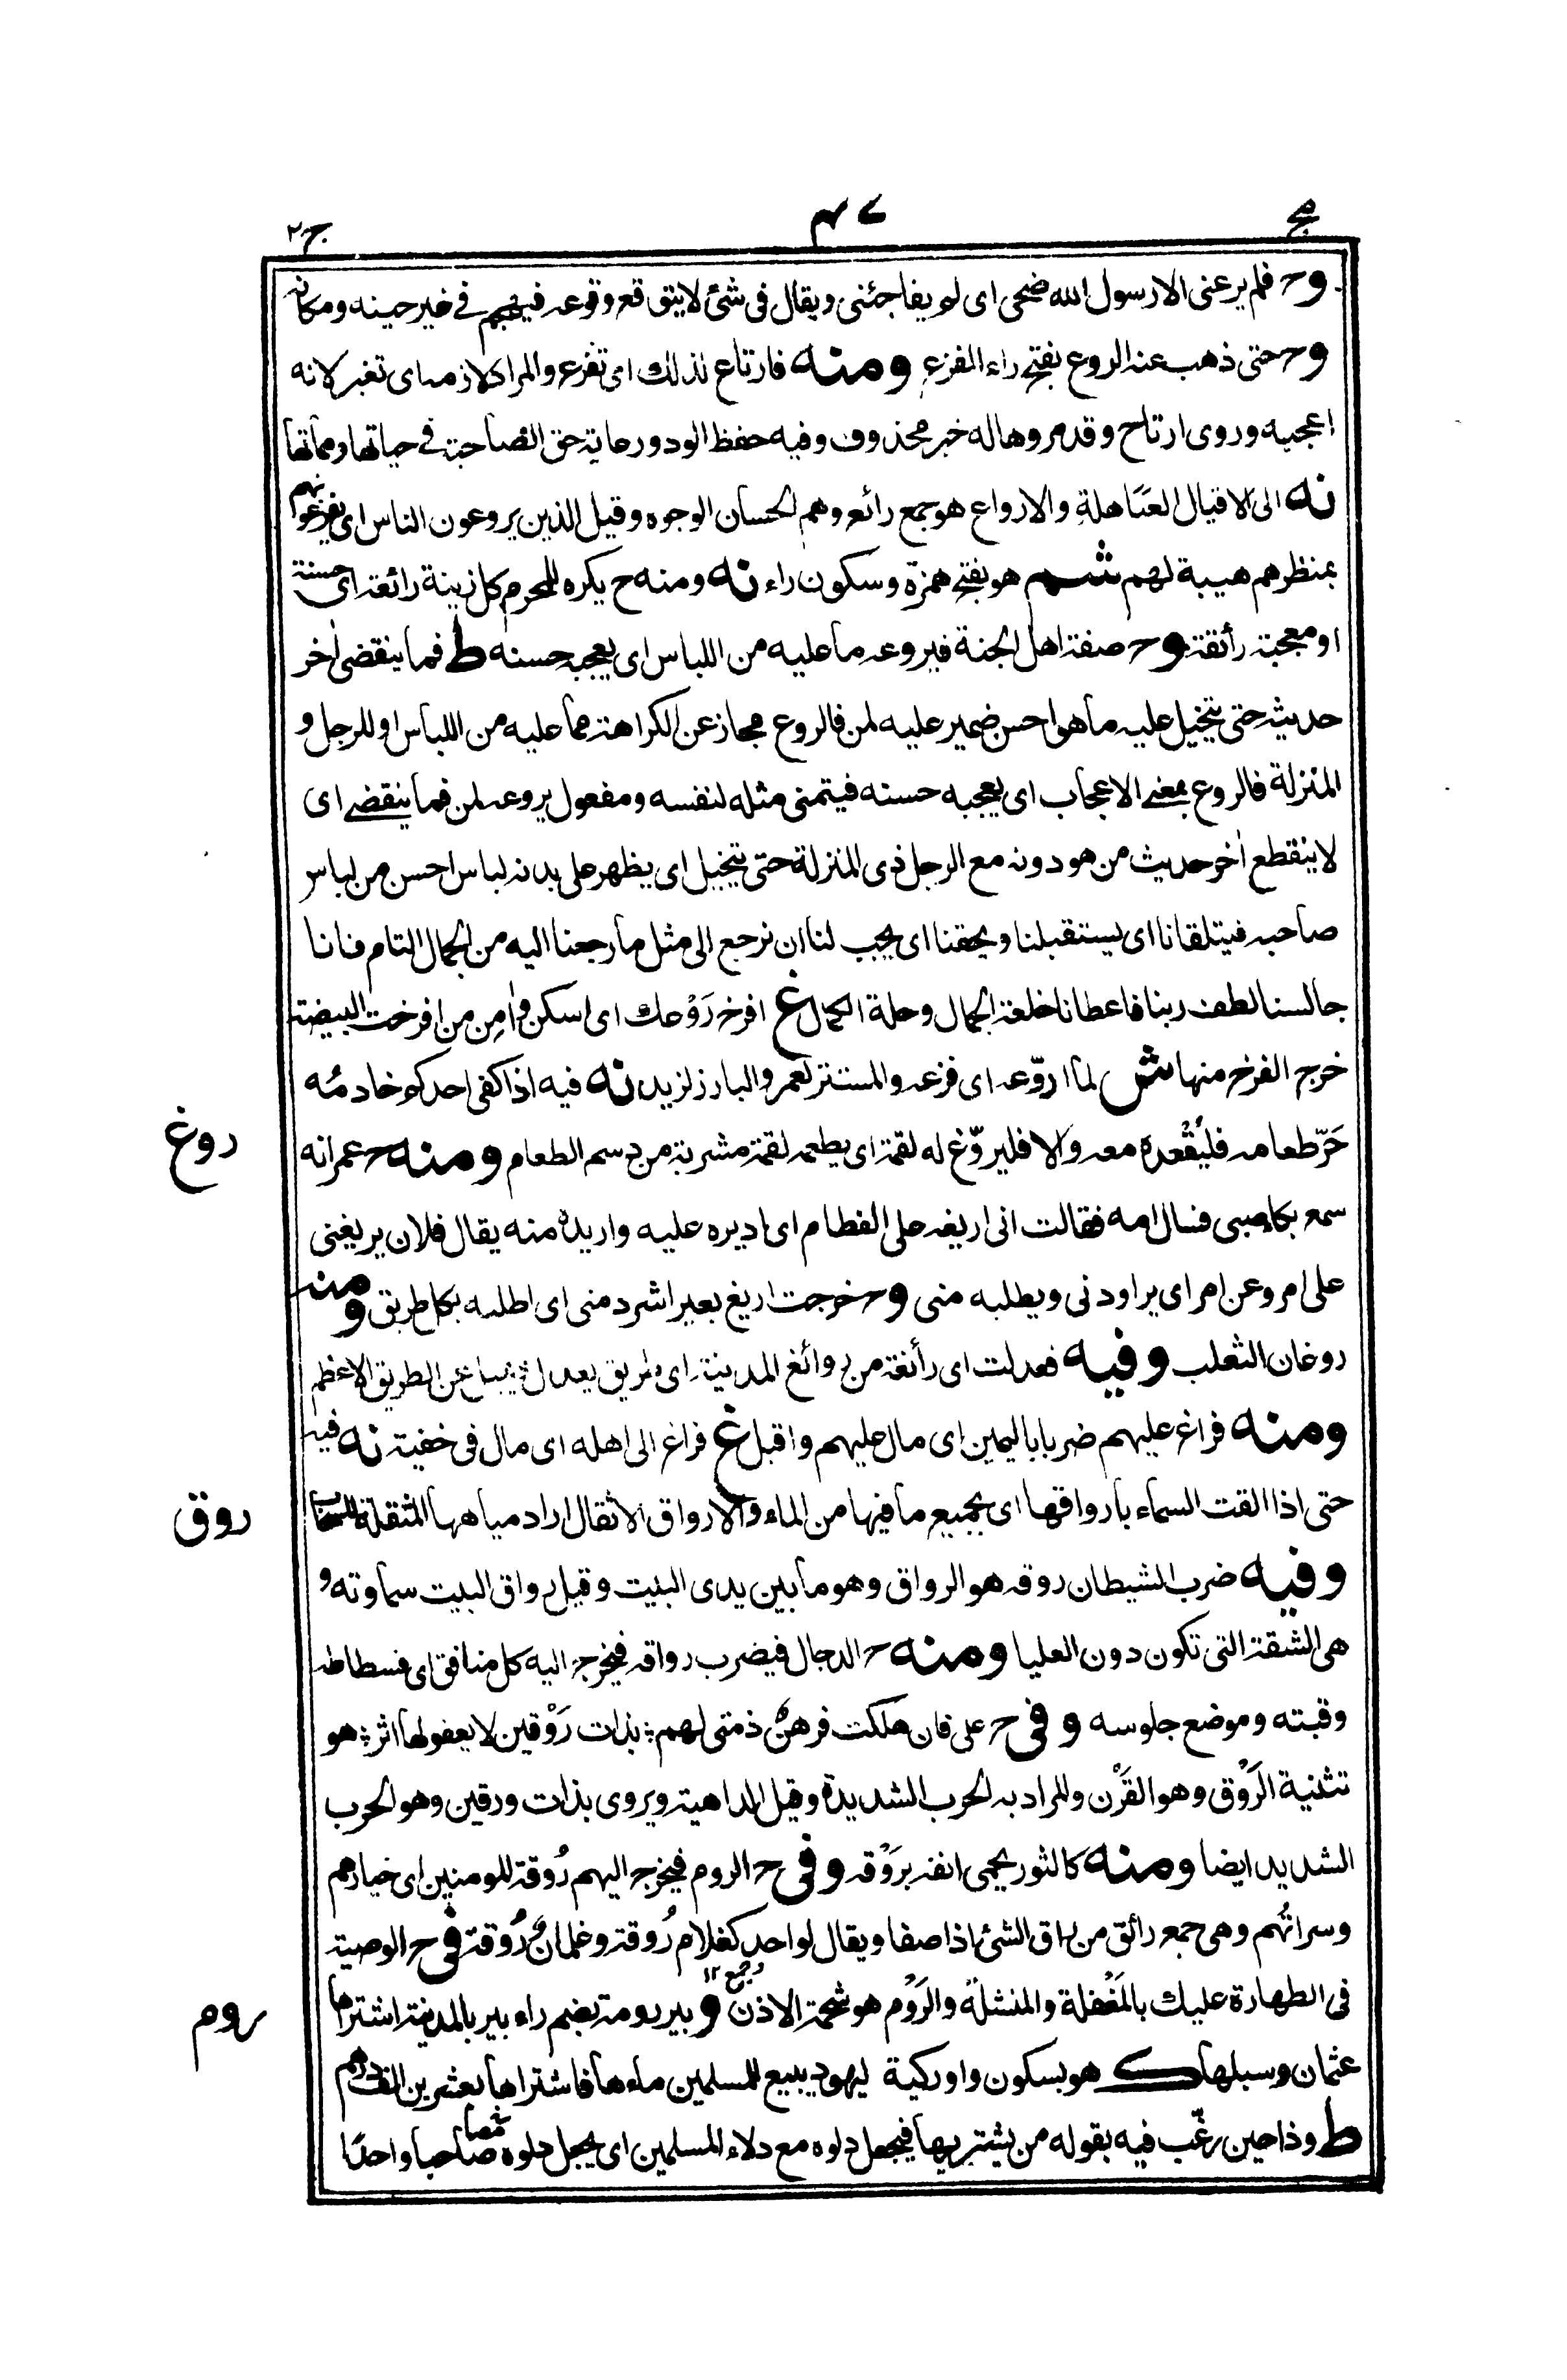 مج
۴۷
ج۲
وح فلم يرعنى الا رسول الله ضحى اى لم يفاجئنى ويقال فى شئ لا يتوقع وقوعه فيهجم فى غير حينه ومكانه
وح حتى ذهب عنه الروع بفتح راء الفزع ومنه فارتاع لذلك اى تفزع والمراد لازمه اى تغير لانه
اعجبه وروى ارتاح وقد مر وهاله خبر محذوف وفيه حفظ الود ورعاية حق الصاحبة فى حياتها ومماتها
نه الى الاقيال العَبَاهلةِ والارواع هو جمع رائع وهم الحسان الوجوه وقيل الذين يروعون الناس اى يفزعونهم
بمنظرهم هيبة لهم شم هو بفتح همزة وسكون راء نه ومنه ح يكره للمحرم كل زينة رائعة اى حسنة
او معجبة رأئقة وح صفة اهل الجنة فيروعه ما عليه من اللباس اى يعجبه حسنه ط فما ينقضى أخر
حديثه حتى يتخيل عليه ما هو احسن ضمير عليه لمن فالروع مجاز عن الكراهة مما عليه من اللباس او للرجل و
المنزلة فالروع بمعنى الاعجاب اى يعجبه حسنه فيتمنى مثله لنفسه ومفعول يروعه لمن فما ينقضے اى
لا ينقطع أخر حديث من هو دونه مع الرجل ذى المنزلة حتى يتخيل اى يظهر على بدنه لباس احسن من لباس
صاحبه فيتلقانا اى يستقبلنا ويحقنا اى يجب لنا ان نرجع الى مثل ما رجعنا اليه من الجمال التام فانا
جالسنا لطف ربنا فاعطانا خلعة الجمال وحلة الكمال غ افرخ رَوْعك اى اسكن وأمِن من افرخت البيضة
خرج الفرخ منها ش لما اروّعه اى فزعه والمستتر لعمر والبارز لزيد نه فيه اذا كفى احدكم خادمُه
حَرّ طعامه فليُقْعدهُ معه والا فليروّغ له لقمة اى يطعمه لقمة مشربة من دسم الطعام ومنه ح عمر انه
روغ
سمع بكاء صبى فسال امه فقالت انى اريغه على الفطام اى اديره عليه واريده منه يقال فلان يريغنى
على امر وعن امر اى يراودنى ويطلبه منى وح خرجت اريغ بعيرا شرد منى اى اطلبه بكل طريق ومنه
روغان الثعلب وفيه فعدلت اى رأئغة من روائغ المدينة اى طريق يعدل عن الطريق الاعظم
ومنه فراغ عليهم ضربا باليمين اى مال عليهم واقبل غ فراغ الى اهله اى مال فى خفية نه فيه
حتى اذا القت السماء بارواقها اى بجميع ما فيها من الماء والارواق الاثقال اراد مياهها المثقلة للسحاب
روق
وفيه ضرب الشيطان روقه هو الرواق وهو ما بين يدى البيت وقيل رواق البيت سماوته و
هى الشقة التى تكون دون العليا ومنه ح الدجال فيضرب رواقه فيخرج اليه كل منافق اى فسطاطه
وقبته وموضع جلوسه وفى ح على فان هلكت فرهنٌ ذمتى لهم ؛ بذات رَوْقين لا يعفو لها اثر ؛ هو
تثنية الرَوْق وهو القَرْن والمراد به الحرب الشديدة وقيل الداهية ويروى بذات ودقين وهو الحرب
الشديد ايضا ومنه كالثور يحمى انفه برَوْقه وفى ح الروم فيخرج اليهم رُوقة المومنين اى خيارهم
وسراتُهم وهى جمع رائق من راق الشئ اذا صفا ويقال لواحد كغلام رُوقة وغلمانٌ رُوقة فى ح الوصية
وجمع ١٢
فى الطهارة عليك بالمَغْفلة والمنشلة والرَوْم هو شحمة الاذن و بير رومة بضم راء بير بالمدينة اشتراها
روم
عثمان وسبلها ك هو بسكون واو ركية ليهود يبيع للمسلمين ماءها فاشتراها بعشرين الف درهم
ط وذا حين رغّب فيه بقوله من يشتريها فيجعل دلوه مع دلاء المسلمين اى يجعل دلوه مُصاحبا واحدًا